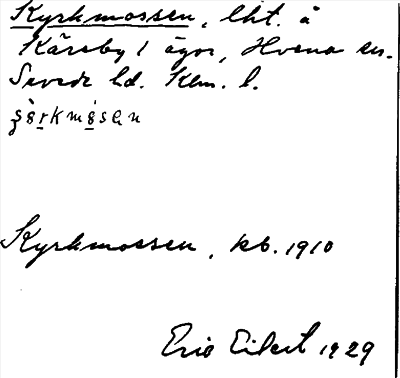 Kyrkmossen, lht. å
Kåreby 1 ägor, Hvena sn.
Sevede hd. Klm. l.
Kyrkmossen, kb. 1910
Eric Eilert 1929